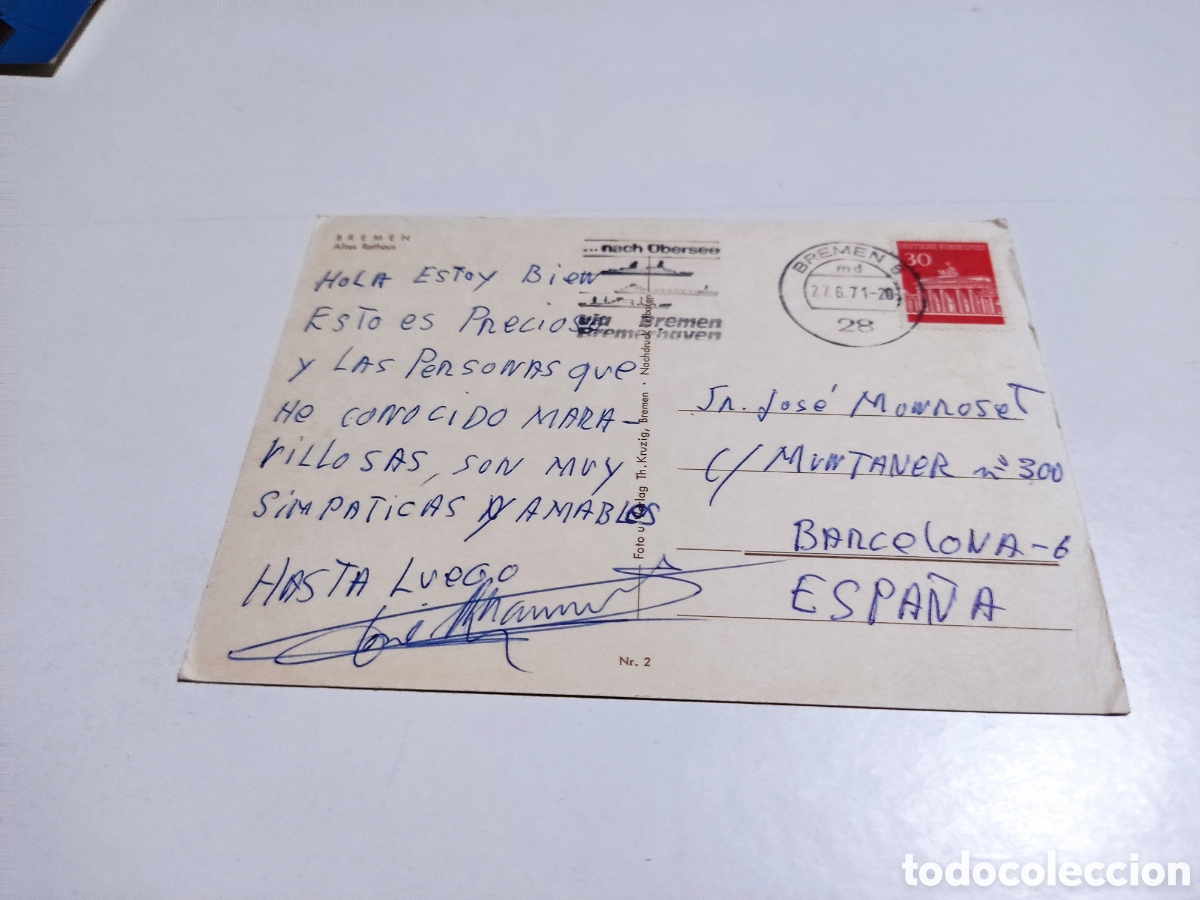 BREMEN
Altes Rathaus
HOLA ESTOY BIEN
ESTO ES PRECIOSO
Y LAS PERSONAS QUE
HE CONOCIDO MARA-
VILLOSAS, SON MUY
SIMPATICAS Y AMABLES
HASTA LUEGO
Nr. 2
Foto u. Verlag Th. Kruzig, Bremen · Nachdruck verboten
...nach Übersee
via Bremen
Bremerhaven
BREMEN 5
md
27.6.71-20
28
DEUTSCHE BUNDESPOST
30
Sr. José Monroset
C/ MUNTANER nº 300
BARCELONA-6
ESPAÑA
todocoleccion